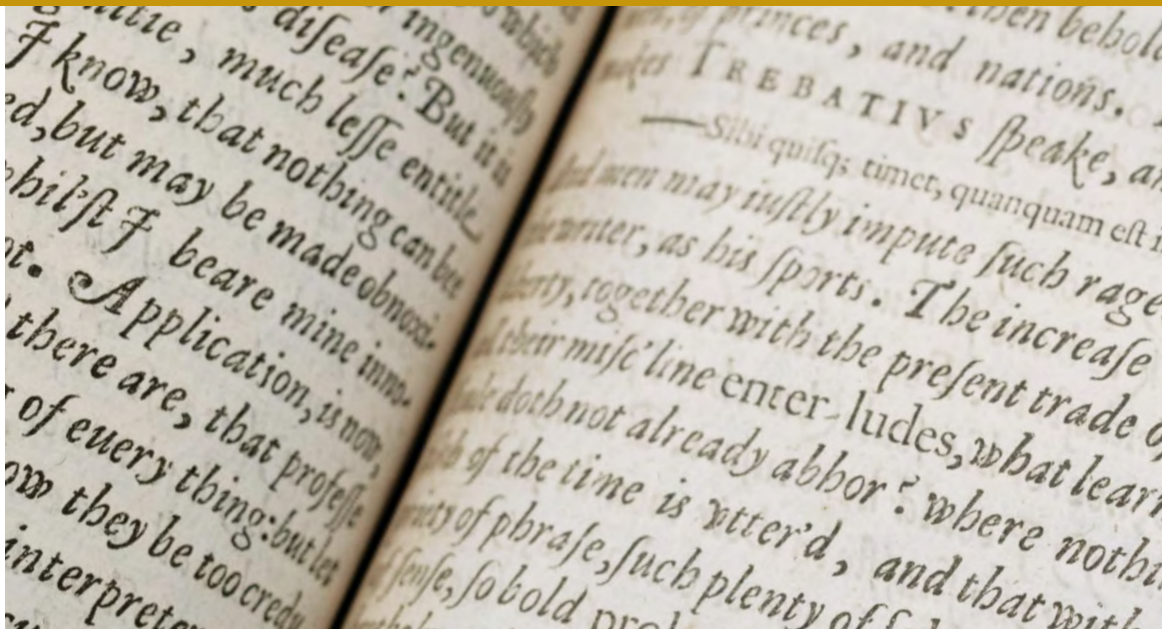 o which
r ingenuously
diſeaſe? But it is
ultie, much leſſe entitle
I know, that nothing can bee
ed, but may be made obnoxi-
whil'ſt I beare mine inno-
ot. Application, is now,
there are, that profeſſe
of euery thing: but let
ow they be too credu
interprete
then behold
of princes, and nations.
TREBATIVS ſpeake, an
—Sibi quiſq; timet, quanquam eſt i
And men may iuſtly impute ſuch rage
the writer, as his ſports. The increaſe
liberty, together with the preſent trade o
their miſc'line enter-ludes, what learn
doth not already abhor? where nothi
of the time is vtter'd, and that with
of phraſe, ſuch plenty of
ſenſe, ſo bold